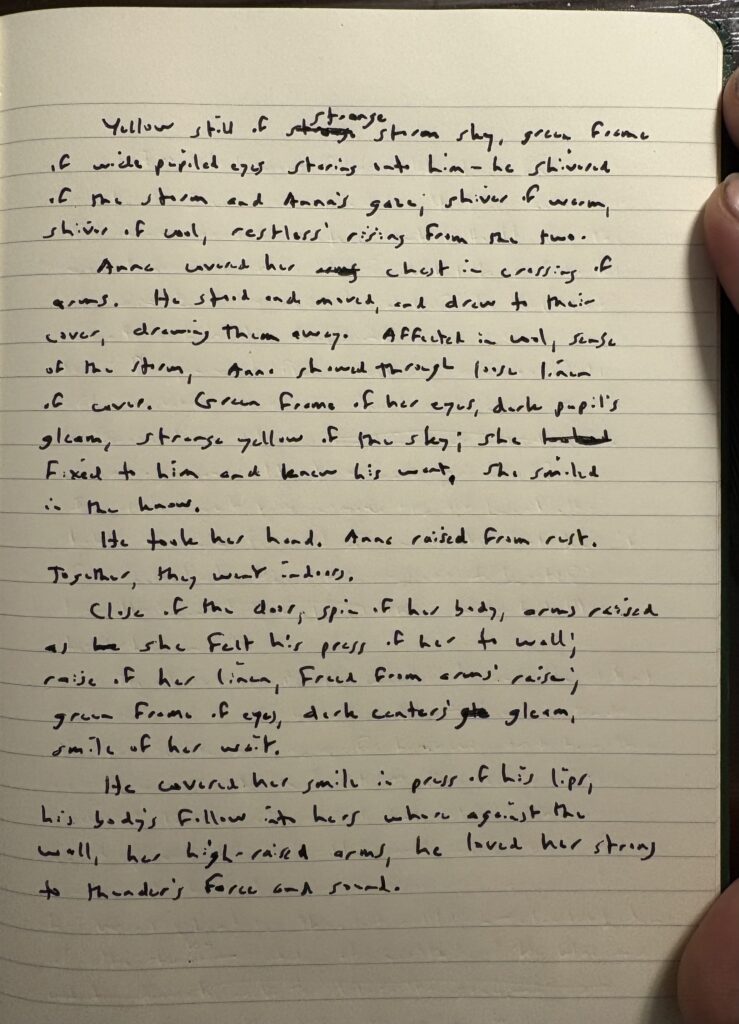 Yellow still of strange storm sky, green frame
of wide pupiled eyes staring into him – he shivered
of the storm and Anna's gaze; shiver of warm,
shiver of cool, restless' rising from the two.
Anna covered her chest in crossing of
arms. He stood and moved, and drew to their
cover, drawing them away. Affected in cool, sense
of the storm, Anna showed through loose linen
of cover. Green frame of her eyes, dark pupil's
gleam, strange yellow of the sky; she
fixed to him and knew his want, she smiled
in the know.
He took her hand. Anna raised from rest.
Together, they went indoors.
Close of the door, spin of her body, arms raised
as she felt his press of her to wall;
raise of her linen, freed from arms' raise;
green frame of eyes, dark centers' gleam,
smile of her wait.
He covered her smile in press of his lips,
his body's follow into hers where against the
wall, her high-raised arms, he loved her strong
to thunder's force and sound.